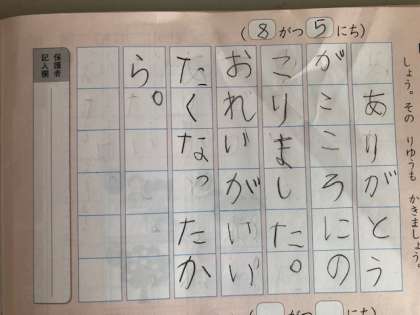 しょう。その りゆうも かきましょう。
(8がつ5にち)
ありがとう
がこころにの
こりました。
おれいがいい
たくなったか
ら。
保護者
記入欄